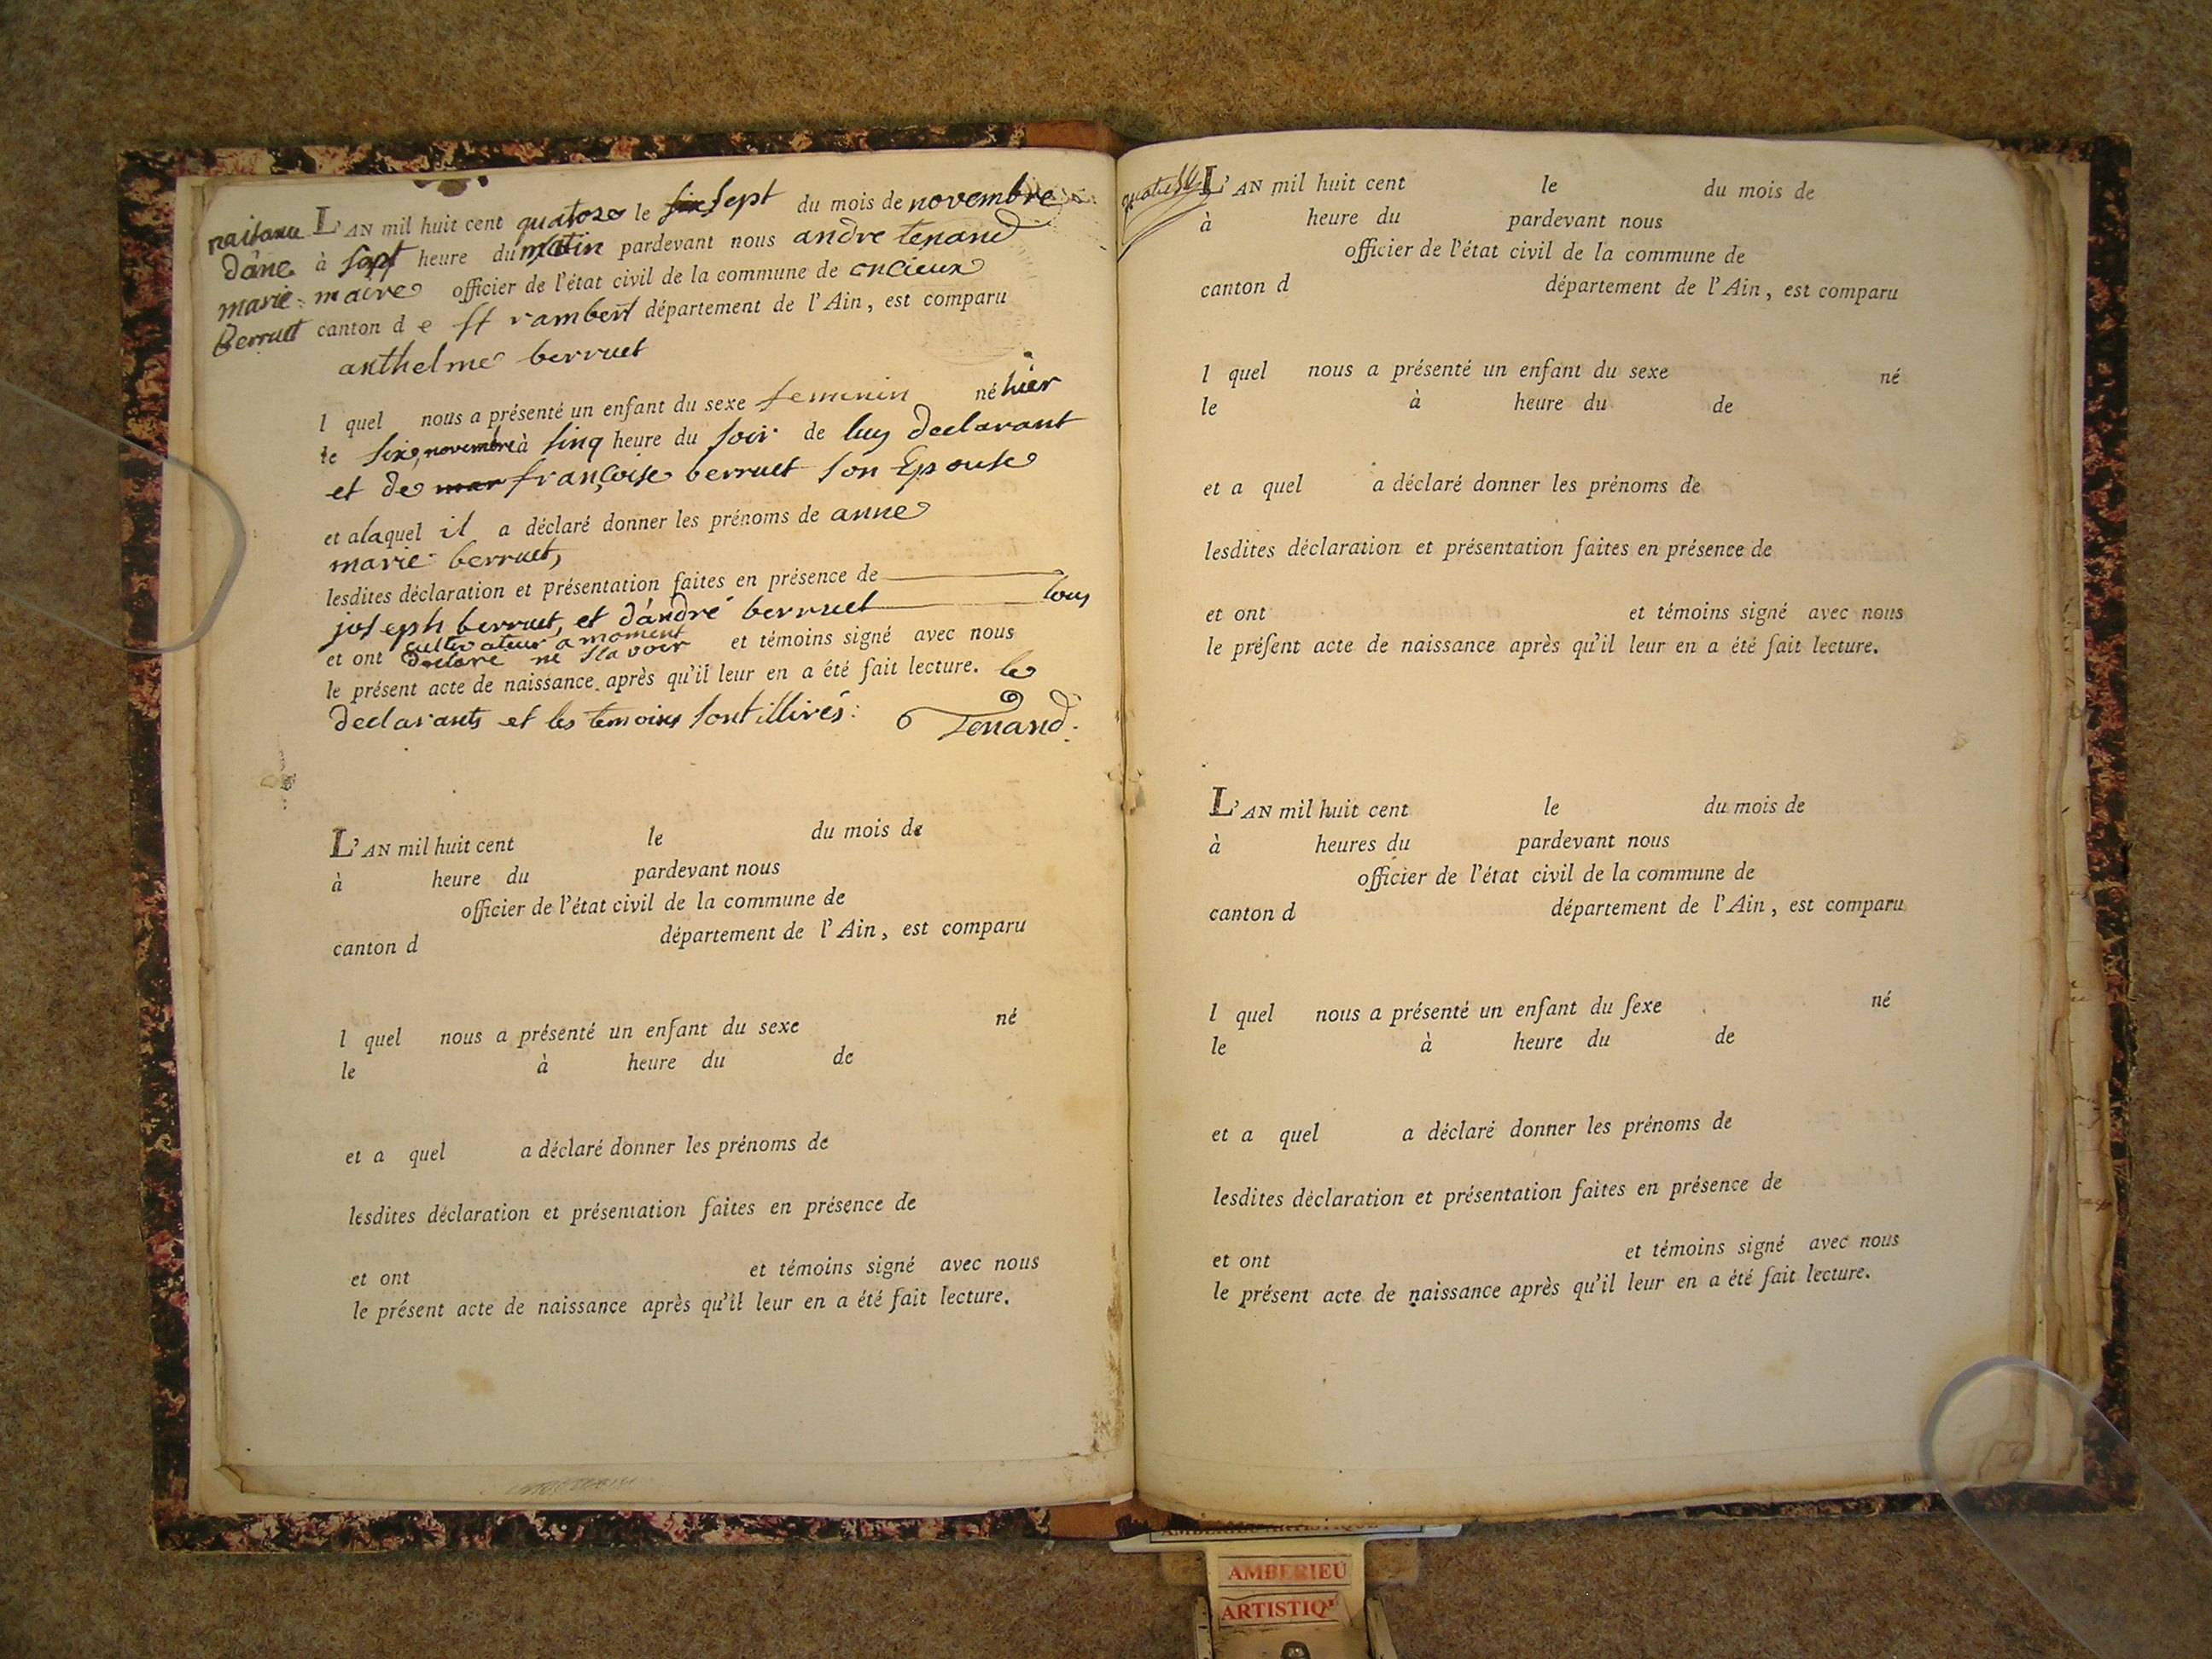 naissance
dâne
marie
Berruet
L'AN mil huit cent quatorze le six sept du mois de novembre
à sept heure du matin pardevant nous andre tenand
maire officier de l'état civil de la commune de oncieux
canton d e st rambert département de l'Ain, est comparu
anthelme berruet
l quel nous a présenté un enfant du sexe feminin né hier
le six, novembre à sinq heure du soir de luy declarant
et de mar françoise berruet son Epouse
et alaquel il a déclaré donner les prénoms de anne
marie berruet,
lesdites déclaration et présentation faites en présence de
joseph berruet, et d'andré berruet tous
cultivateur
et ont declaré ne sçavoir et témoins signé avec nous
le présent acte de naissance après qu'il leur en a été fait lecture. le
declarants et les temoins sont illirés: Tenand
L'AN mil huit cent le du mois de
à heure du pardevant nous
officier de l'état civil de la commune de
canton d département de l'Ain, est comparu
l quel nous a présenté un enfant du sexe né
le à heure du de
et a quel a déclaré donner les prénoms de
lesdites déclaration et présentation faites en présence de
et ont et témoins signé avec nous
le présent acte de naissance après qu'il leur en a été fait lecture.
L'AN mil huit cent le du mois de
à heure du pardevant nous
officier de l'état civil de la commune de
canton d département de l'Ain, est comparu
l quel nous a présenté un enfant du sexe né
le à heure du de
et a quel a déclaré donner les prénoms de
lesdites déclaration et présentation faites en présence de
et ont et témoins signé avec nous
le préſent acte de naissance après qu'il leur en a été fait lecture.
L'AN mil huit cent le du mois de
à heures du pardevant nous
officier de l'état civil de la commune de
canton d département de l'Ain, est comparu
l quel nous a présenté un enfant du ſexe né
le à heure du de
et a quel a déclaré donner les prénoms de
lesdites déclaration et présentation faites en présence de
et ont et témoins signé avec nous
le présent acte de naissance après qu'il leur en a été fait lecture.
AMBERIEU ARTISTIQUE
AMBERIEU
ARTISTIQ